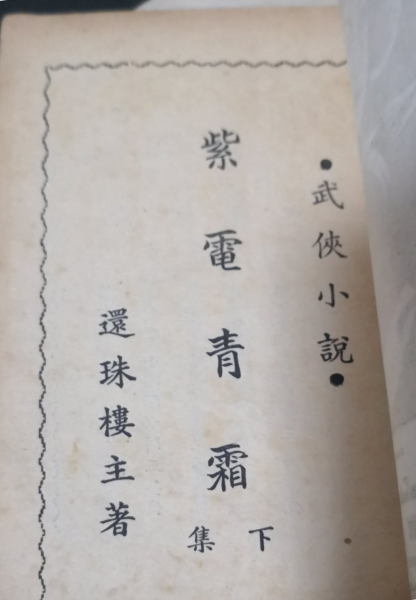 ●武俠小說●
紫電青霜
下集
還珠樓主著